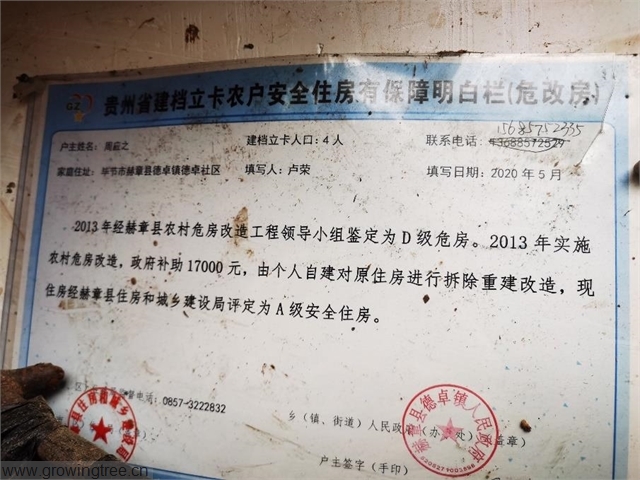 GZ
贵州省建档立卡农户安全住房有保障明白栏(危改房)
15685752335
户主姓名：周庭之 建档立卡人口：4人 联系电话：13688572529
家庭住址：毕节市赫章县德卓镇德卓社区 填写人：卢荣 填写日期：2020年5月
2013年经赫章县农村危房改造工程领导小组鉴定为D级危房。2013年实施
农村危房改造，政府补助17000元，由个人自建对原住房进行拆除重建改造，现
住房经赫章县住房和城乡建设局评定为A级安全住房。
督电话：0857-3222832
县住房和城乡建设局
乡（镇、街道）人民政府（办事处）（盖章）
赫章县德卓镇人民政府
户主签字（手印）
www.growingtree.cn